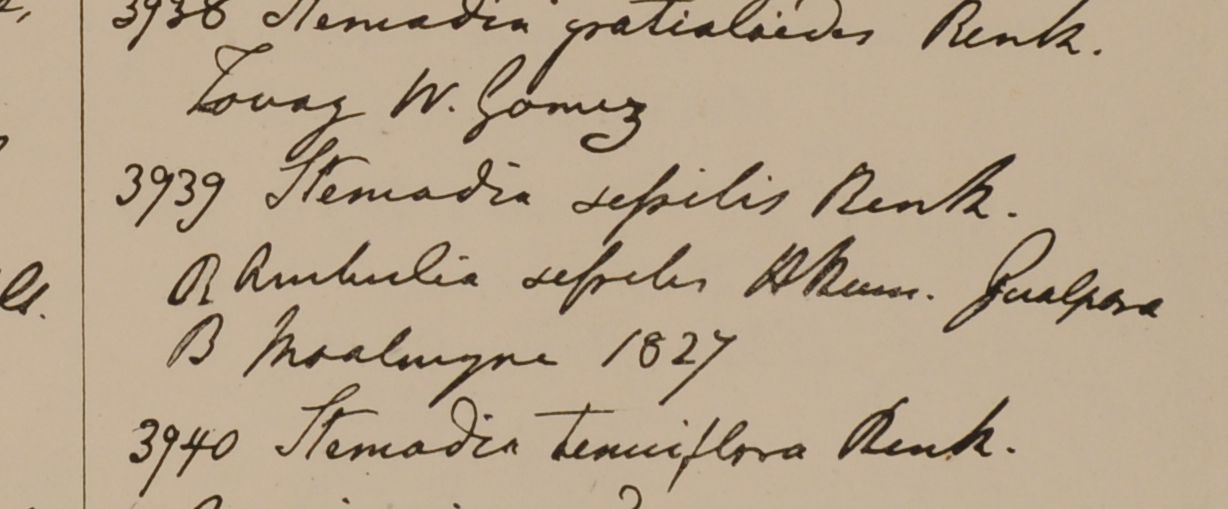 3938 Stemadia gratioloides Benth.
Tovay W. Gomez
3939 Stemadia sessilis Benth.
A Ambulia sessilis HHam. Gualpara
B Moalmyne 1827
3940 Stemadia tenuiflora Benth.